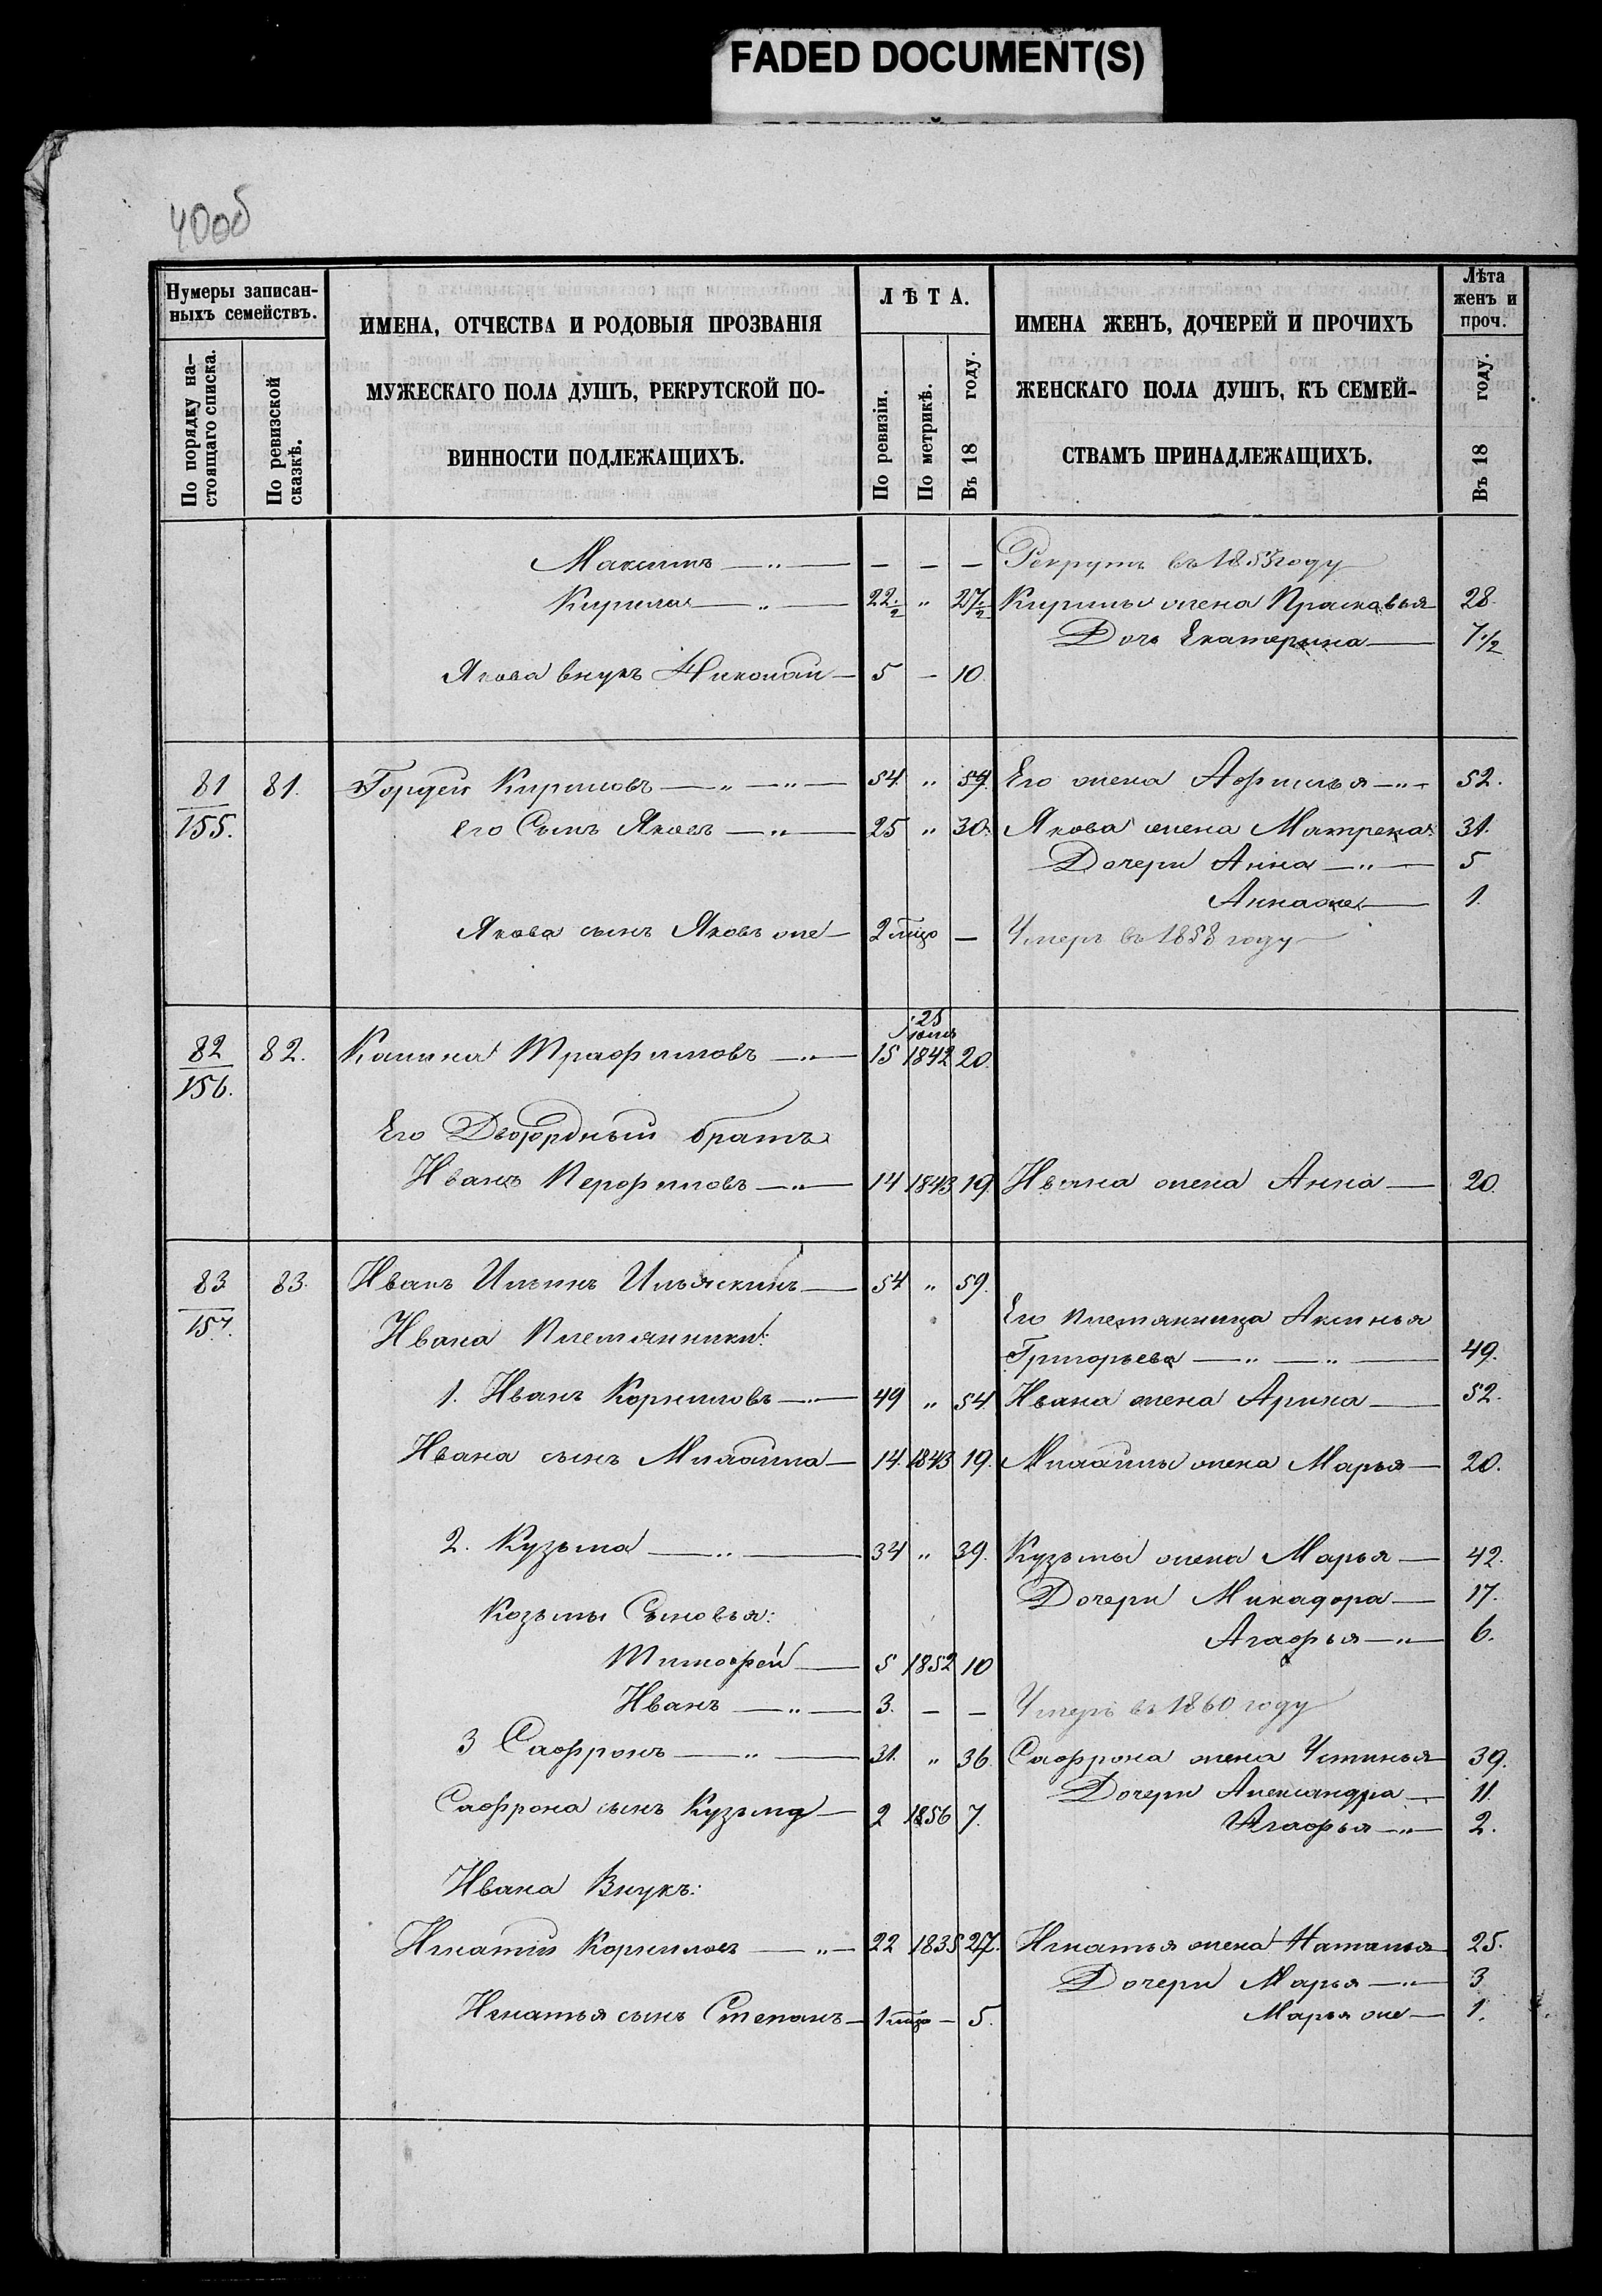 FADED DOCUMENT(S)
40об
Нумеры записан-
ныхъ семействъ.
По порядку на-
стоящаго списка.
По ревизской
сказкѣ.
ИМЕНА, ОТЧЕСТВА И РОДОВЫЯ ПРОЗВАНІЯ
МУЖЕСКАГО ПОЛА ДУШЪ, РЕКРУТСКОЙ ПО-
ВИННОСТИ ПОДЛЕЖАЩИХЪ.
ЛѢТА.
По ревизіи.
По метрикѣ.
Въ 18 году.
ИМЕНА ЖЕНЪ, ДОЧЕРЕЙ И ПРОЧИХЪ
ЖЕНСКАГО ПОЛА ДУШЪ, КЪ СЕМЕЙ-
СТВАМЪ ПРИНАДЛЕЖАЩИХЪ.
Лѣта
женъ и
проч.
Въ 18 году.
Максимъ — „ — — — — Рекрутъ въ 1853 году
Кирила — „ — 22 1/2 „ 27 1/2 Кирилы жена Прасковья 28.
Дочь Екатерина — 7 1/2
Якова внукъ Николай — 5 — 10.
81 81. Гордей Кириловъ — „ — „ — 54. „ 59. Его жена Афимья — „ — 52.
155. его Сынъ Яковъ — „ — 25 „ 30. Якова жена Матрена 31.
Дочери Анна — „ — 5
Анна же — 1.
Якова сынъ Яковъ же — 2 мѣц — Умеръ въ 1858 году
25
Іюля
82 82. Калина Трафимовъ — „ — 15 1842 20.
156.
Его Двоюродный братъ
Иванъ Перфиловъ — „ — 14 1843 19. Ивана жена Анна — 20.
83 83. Иванъ Ильинъ Ильяскинъ — 54 „ 59.
157. Ивана Племянники: Его племянница Аксинья
Григорьева — „ — „ — 49.
1. Иванъ Корниловъ — „ — 49 „ 54. Ивана жена Арина — 52.
Ивана сынъ Михайла — 14. 1843 19. Михайлы жена Марья — 20.
2. Кузьма — „ — 34 „ 39. Кузьмы жена Марья — 42.
Козьмы Сыновья: Дочери Микадора — 17.
Агафья — „ — 6.
Тимофей — 5 1852 10
Иванъ — „ — 3. — — Умеръ въ 1860 году
3 Сафронъ — „ — 31. „ 36 Сафрона жена Устинья 39.
Дочери Александра — 11.
Сафрона сынъ Кузьма — 2 1856 7. Агафья — „ — 2.
Ивана Внукъ:
Игнатій Корниловъ — „ — 22 1835 27. Игнатья жена Наталья 25.
Дочери Марья — „ — 3
Игнатья сынъ Степанъ — 1 мѣц — 5. Марья же — 1.